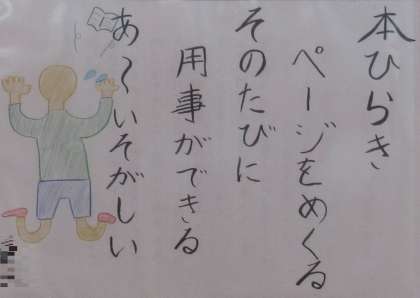 本ひらき
ページをめくる
そのたびに
用事ができる
あ〜いそがしい